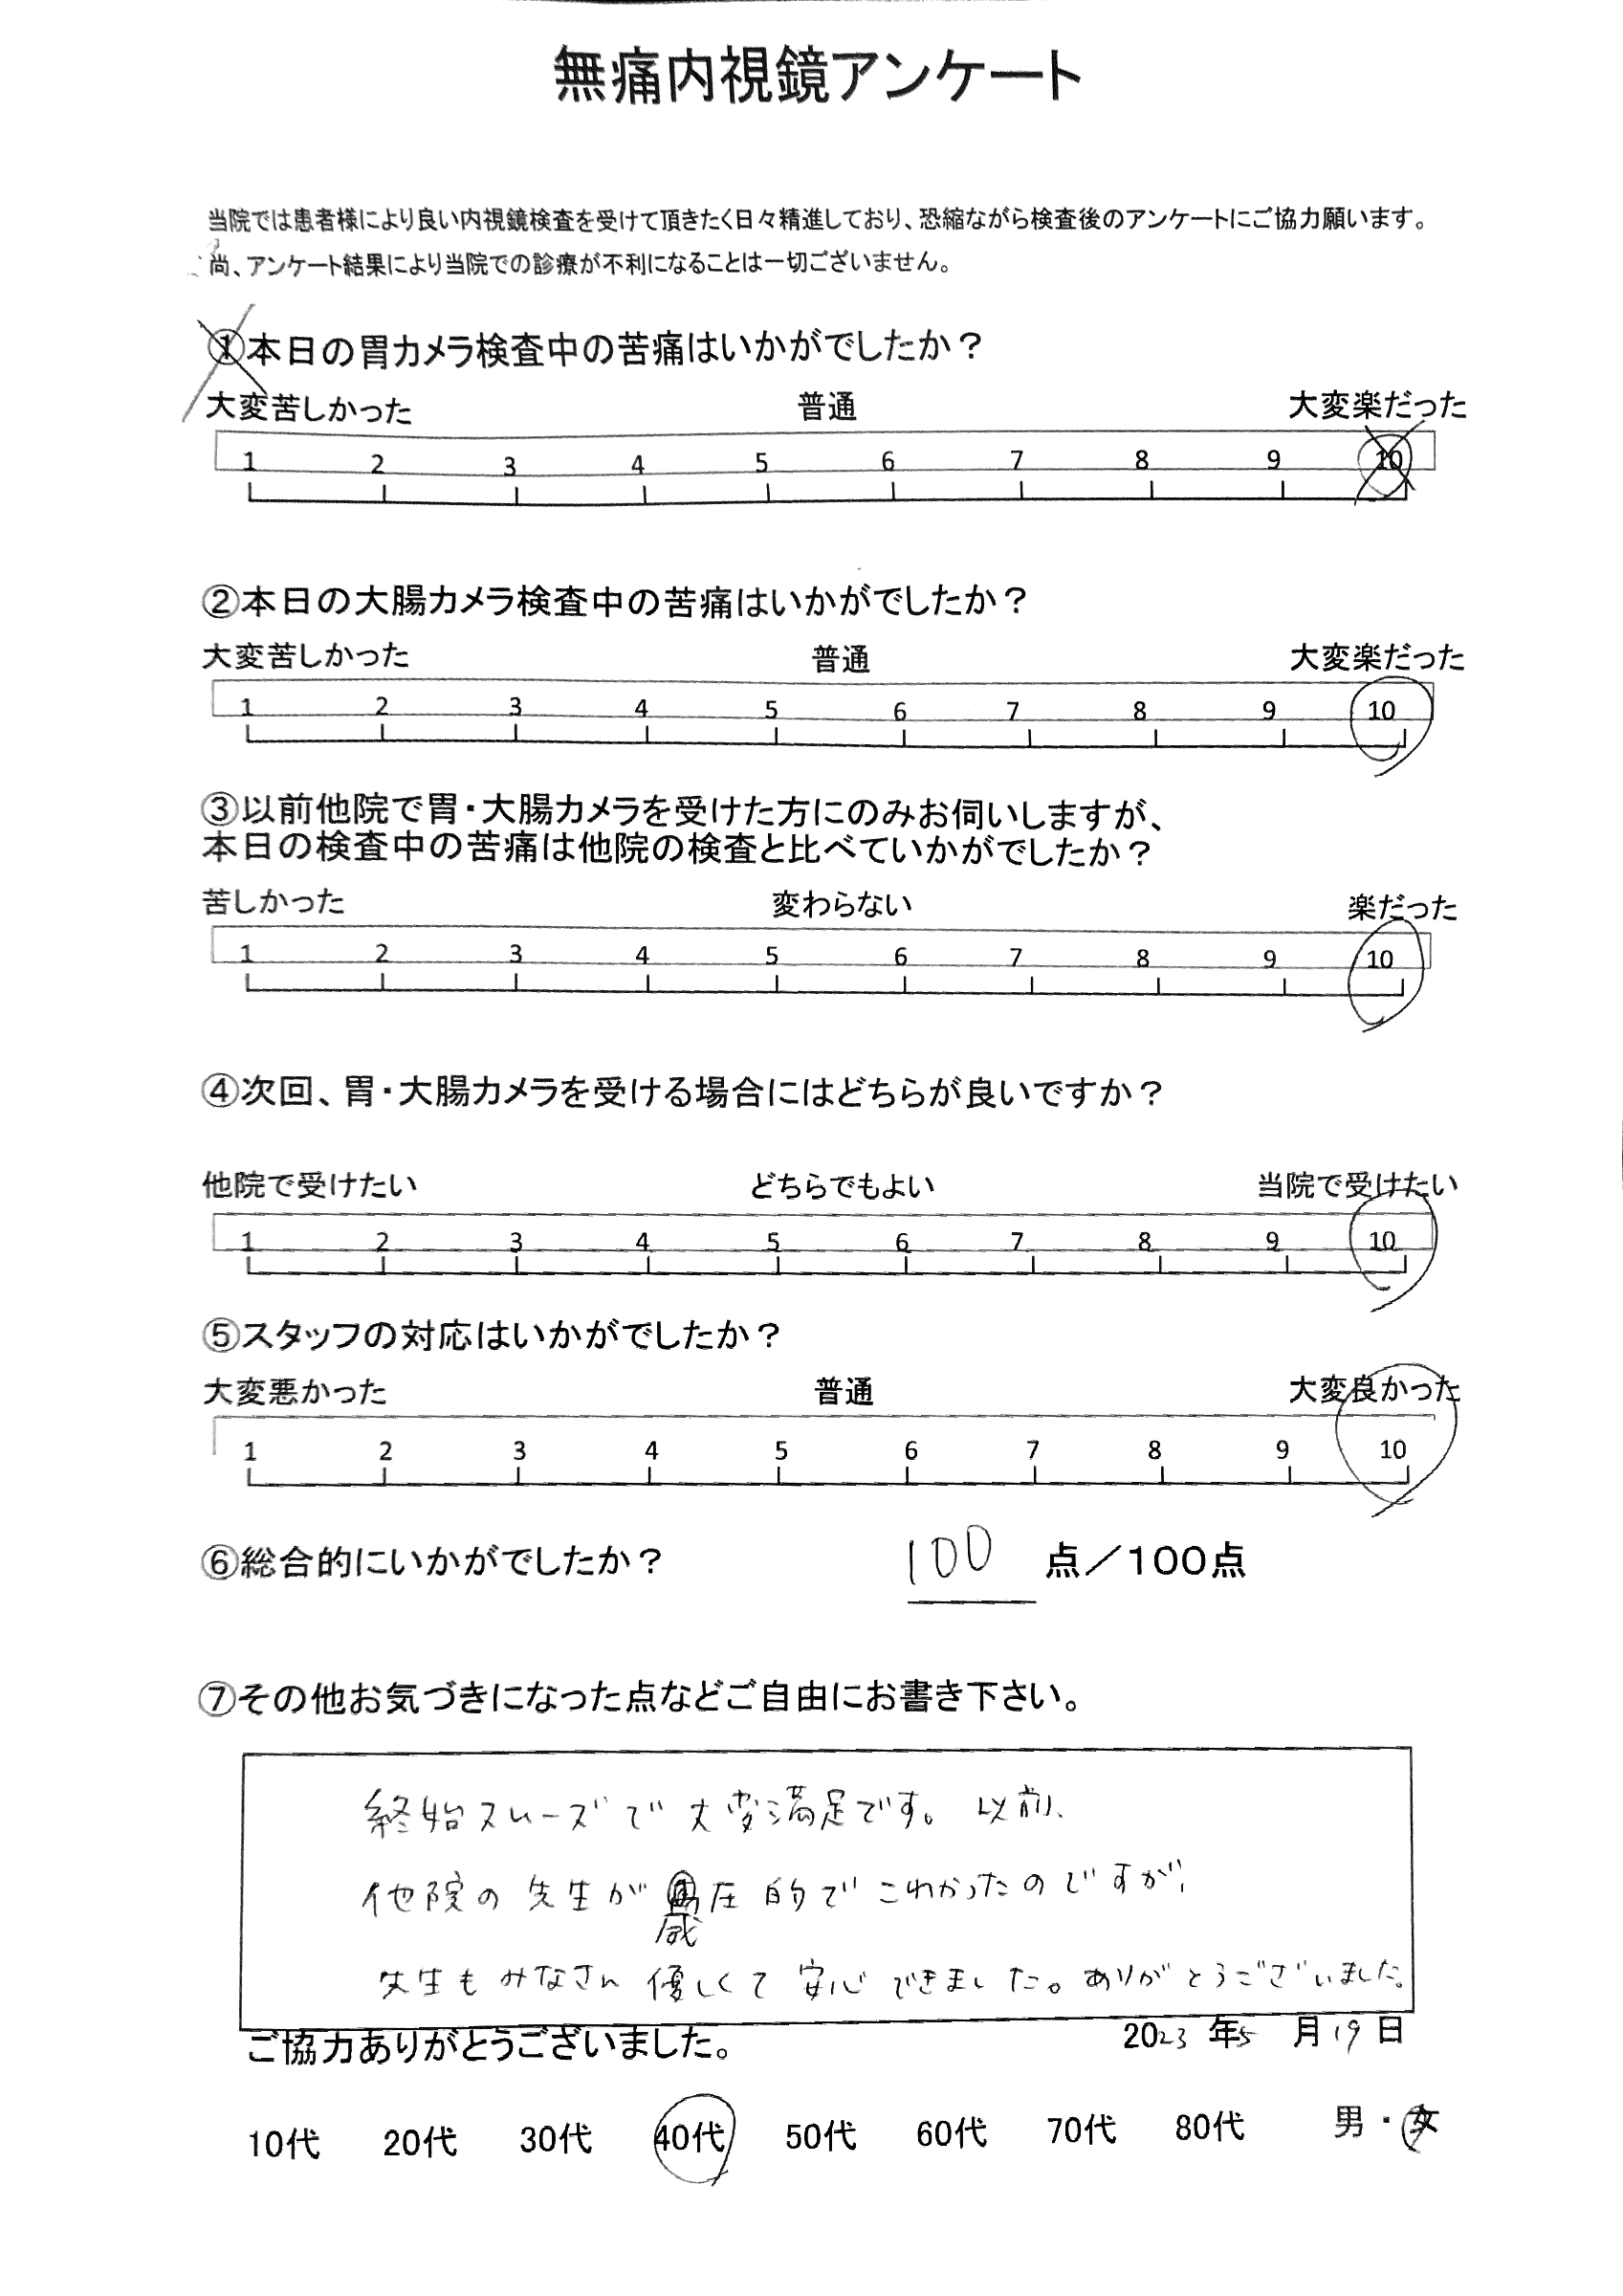 無痛内視鏡アンケート
当院では患者様により良い内視鏡検査を受けて頂きたく日々精進しており、恐縮ながら検査後のアンケートにご協力願います。
尚、アンケート結果により当院での診療が不利になることは一切ございません。
①本日の胃カメラ検査中の苦痛はいかがでしたか？
大変苦しかった 普通 大変楽だった
1 2 3 4 5 6 7 8 9 10
②本日の大腸カメラ検査中の苦痛はいかがでしたか？
大変苦しかった 普通 大変楽だった
1 2 3 4 5 6 7 8 9 10
③以前他院で胃・大腸カメラを受けた方にのみお伺いしますが、
本日の検査中の苦痛は他院の検査と比べていかがでしたか？
苦しかった 変わらない 楽だった
1 2 3 4 5 6 7 8 9 10
④次回、胃・大腸カメラを受ける場合にはどちらが良いですか？
他院で受けたい どちらでもよい 当院で受けたい
1 2 3 4 5 6 7 8 9 10
⑤スタッフの対応はいかがでしたか？
大変悪かった 普通 大変良かった
1 2 3 4 5 6 7 8 9 10
⑥総合的にいかがでしたか？ 100 点／100点
⑦その他お気づきになった点などご自由にお書き下さい。
終始スムーズで大変満足です。以前、
他院の先生が威圧的でこわかったのですが、
先生もみなさん優しくて安心できました。ありがとうございました。
ご協力ありがとうございました。 2023 年5 月19日
10代 20代 30代 40代 50代 60代 70代 80代 男・女